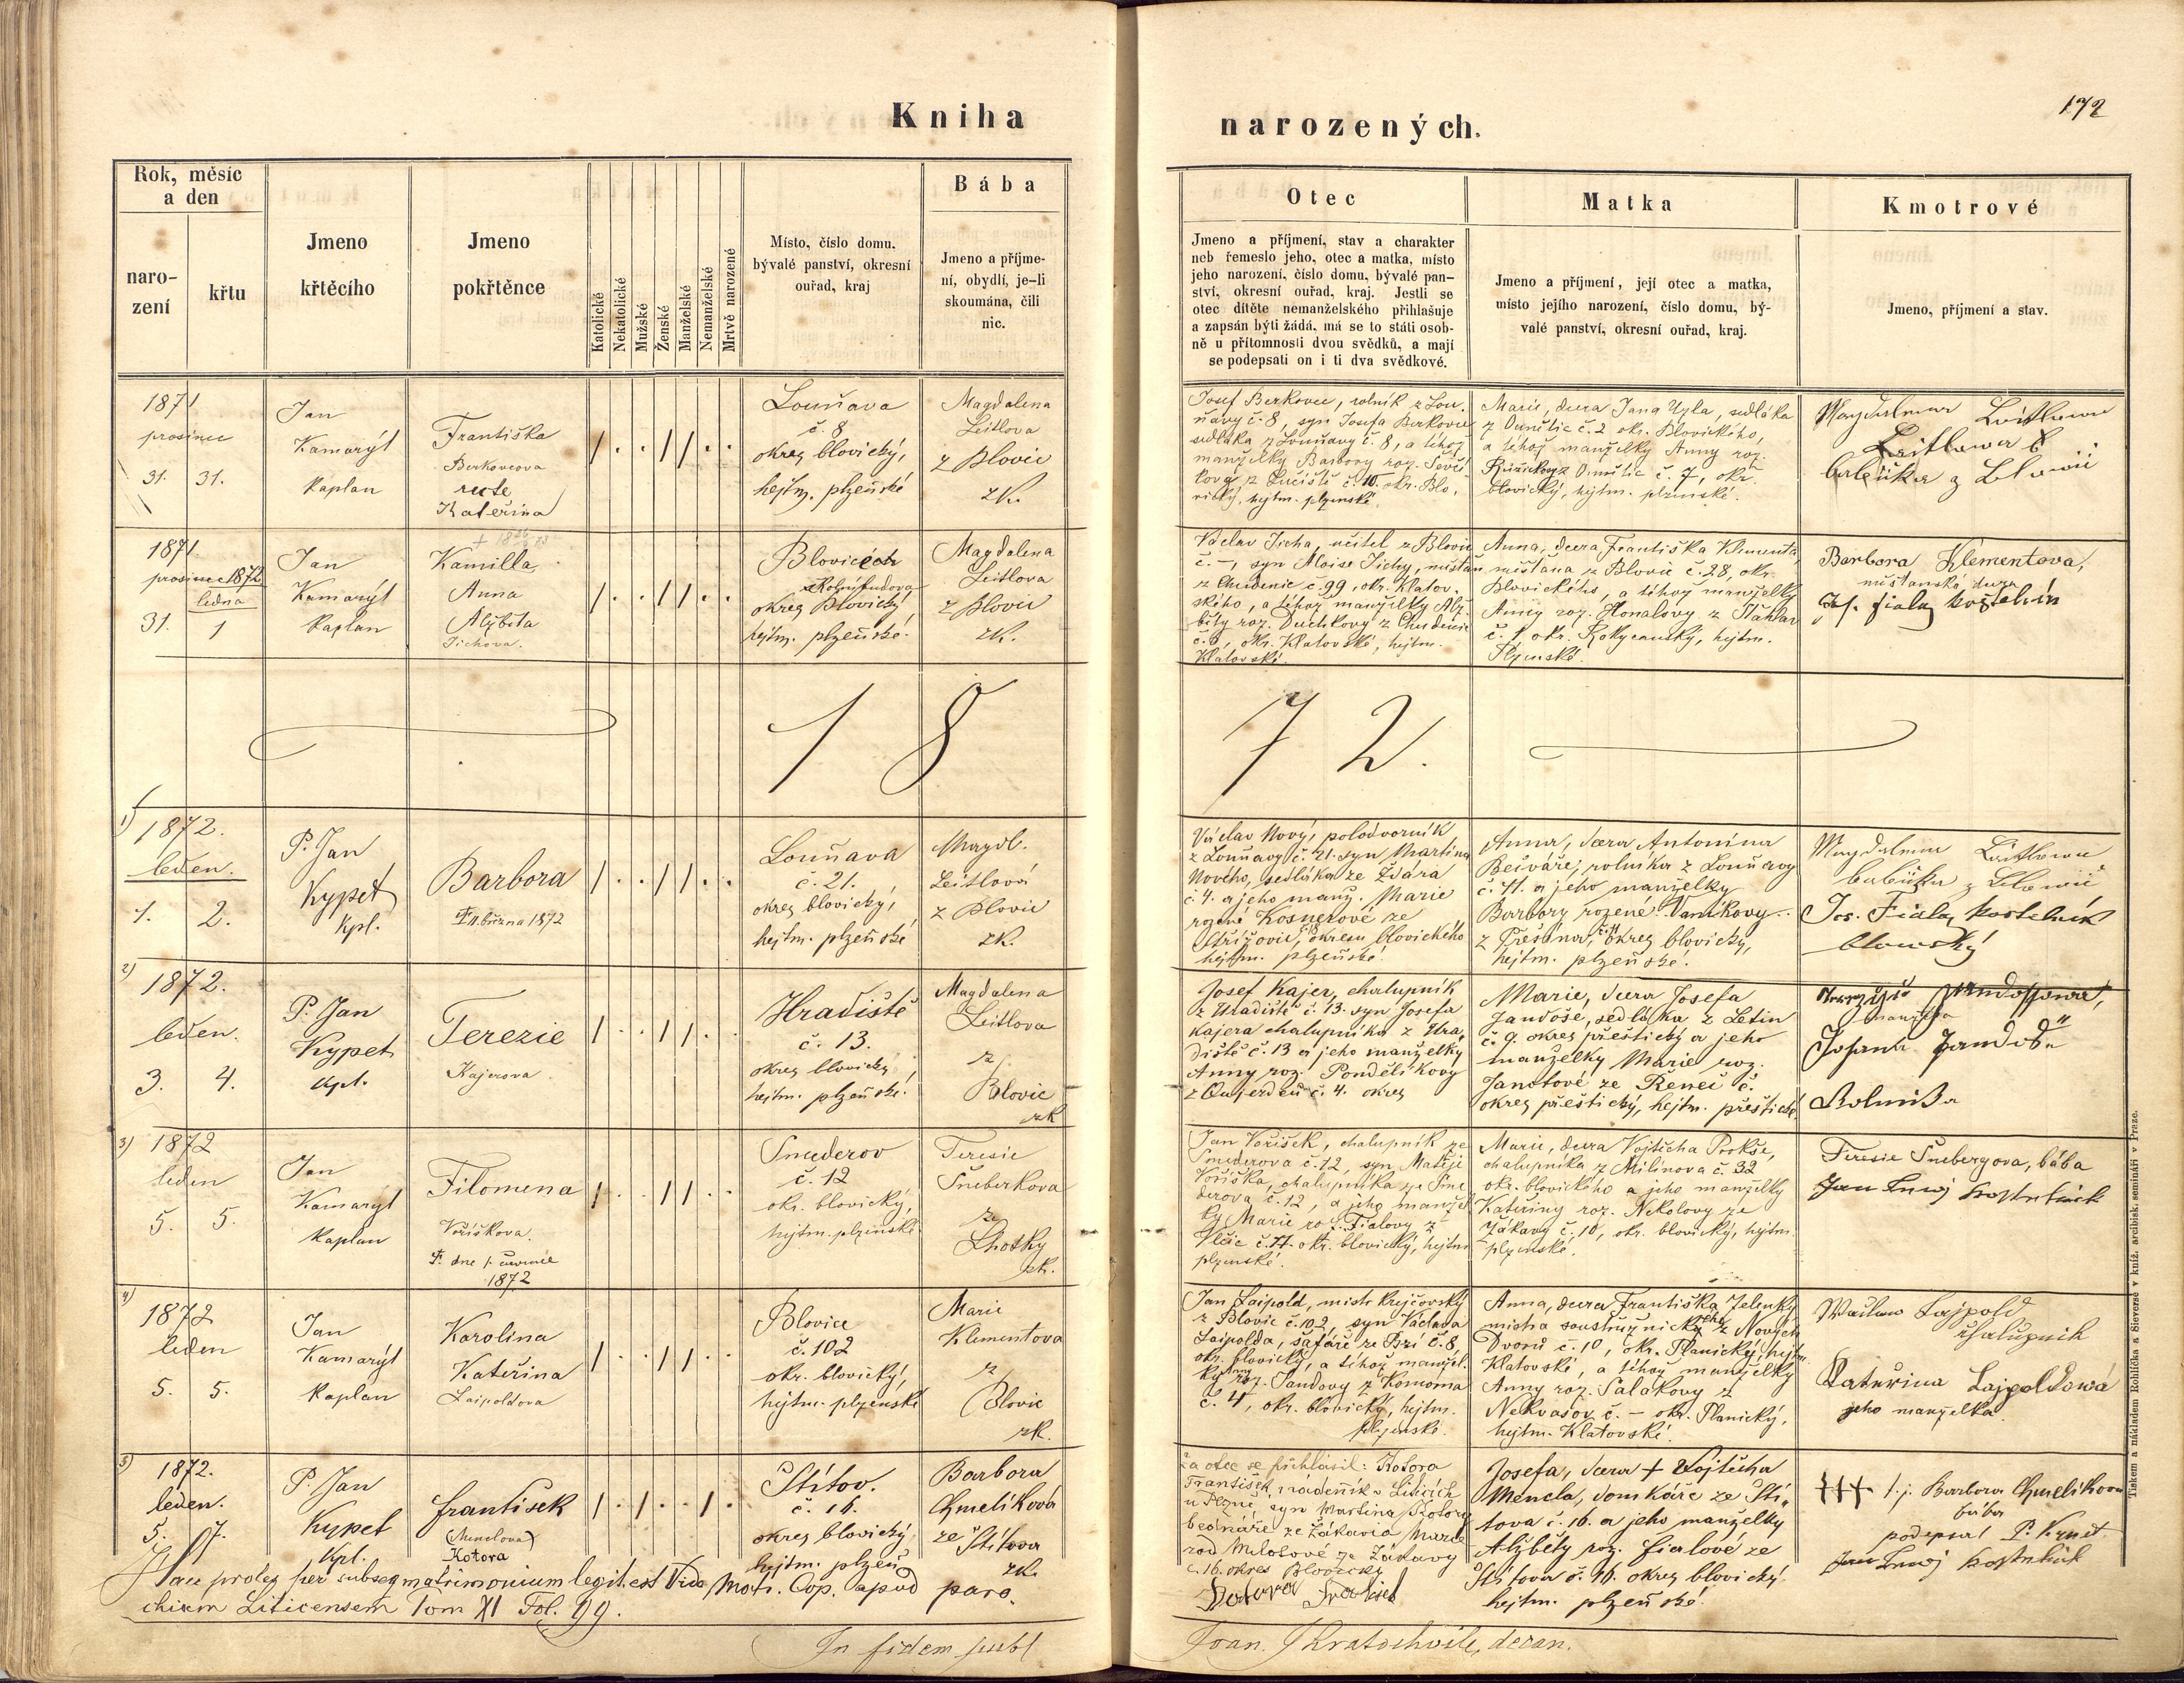 Kniha
narozených.
172
Rok, měsíc
a den
naro-
zení
křtu
Jmeno
křtěcího
Jmeno
pokřtěnce
Katolické
Nekatolické
Mužské
Ženské
Manželské
Nemanželské
Mrtvě narozené
Místo, číslo domu,
bývalé panství, okresní
ouřad, kraj
Bába
Jmeno a příjme-
ní, obydlí, je-li
skoumána, čili
nic.
Otec
Jmeno a příjmení, stav a charakter
neb řemeslo jeho, otec a matka, místo
jeho narození, číslo domu, bývalé pan-
ství, okresní ouřad, kraj. Jestli se
otec dítěte nemanželského přihlašuje
a zapsán býti žádá, má se to státi osob-
ně u přítomnosti dvou svědků, a mají
se podepsati on i ti dva svědkové.
Matka
Jmeno a příjmení, její otec a matka,
místo jejího narození, číslo domu, bý-
valé panství, okresní ouřad, kraj.
Kmotrové
Jmeno, příjmení a stav.
1871
prosinec
31. 31.
Jan
Kamarýt
kaplan
Františka
Berkovcova
recte
Kateřina
Louňava
č. 8
okres blovický,
hejtm. plzeňské
Magdalena
Leitlova
z Blovic
zk.
Josef Berkovec, rolník z Lou-
ňavy č. 8, syn Josefa Berkovce
sedláka z Louňavy č. 8, a téhož
manželky Barbory roz. Ševčí
kovy z Lučiště č. 10. okr. Blo-
vický, hejtm. plzenské.
Marie, dcera Jana Uzla, sedláka
z Vometic č. 2 okr. Blovického,
a téhož manželky Anny roz.
č. 7, okr.
blovický, hejtm. plzenské.
Magdalena Leitlowa
Leitlowa
babička z Blowic
1871.
prosinec 1872
ledna
31. 1
Jan
Kamarýt
kaplan
Kamilla
Anna
Alžběta
Tichova.
Blovicích
okres Blovický
hejtm. plzeňské.
Magdalena
Leitlova
z Blovic
zk.
Václav Tichá, učitel z Blovic
č. –, syn Aloise Tichy, měšťan
z Chudenic č. 99, okr. Klatov-
ského, a téhož manželky Alž-
běty roz. Duchkovy z Chudenic
č. 6, okr. Klatovské, hejtm.
Klatovské.
Anna, dcera Františka Klimenta,
měšťana z Blovic č. 28, okr.
Blovického, a téhož manželky
Anny roz. Honalovy z Šťáhlav
č. 1 okr. Rokycanský, hejtm.
Plzenské.
Barbora Klementova,
měšťanská dcera
Jos. fiala kostelník
1872.
1)
1872.
leden.
1. 2.
P. Jan
Kypet
kpl.
Barbora
† 11. března 1872
Louňava
č. 21.
okres blovický,
hejtm. plzeňské
Magdl.
Leitlová
z Blovic
zk.
Václav Nový, polodvorník
z Louňavy č. 21. syn Martina
Nového, sedláka ze Ždára
č. 4. a jeho manž. Marie
rozené Kosnerové ze
Střížovic, okresu blovického
hejtm. plzeňské.
Anna, dcera Antonína
Bečváře, rolníka z Louňavy
č. 11. a jeho manželky
Barbory rozené Vaníkovy
z Přešína, okres blovický,
hejtm. plzeňské.
Magdalena Leitlowa
babička z Blowic
Jos. Fiala kostelník
blowský
2)
1872.
leden.
3. 4.
P. Jan
Kypet
kpl.
Terezie
Kajerova
Hradiště
č. 13.
okres blovický,
hejtm. plzeňské.
Magdalena
Leitlova
z
Blovic
zk
Josef Kajer, chalupník
z Hradiště č. 13. syn Josefa
Kajera chalupníka z Hra-
diště č. 13 a jeho manželky
Anny roz. Pondělíkovy
z Oujezdeň č. 4. okres
Marie, dcera Josefa
Jandoše, sedláka z Letin
č. 9. okres přeštický a jeho
manželky Marie roz.
Janotové ze Řeneč č.
okres přeštický, hejtm. přeštické
manželka
Josefa Jandoš
Rolnika
3)
1872
leden
5. 5.
Jan
Kamarýt
kaplan
Filomena
Voříškova.
†. dne 1. července
1872
Smederov
č. 12
okr. blovický,
hejtm. plzeňské
Teresie
Šneberkova
ze
Lhotky
zk.
Jan Voříšek, chalupník ze
Smederova č. 12, syn Matěje
Voříška, chalupníka ze Sme
derova č. 12, a jeho manžel
ky Marie roz. Fialovy z
Vlčic č. 17. okr. blovický, hejtm
plzenské.
Marie, dcera Vojtěcha Prokše,
chalupníka z Milinova č. 32
okr. blovického a jeho manželky
Kateřiny roz. Nekolovy ze
Zákavy č. 10, okr. blovický, hejtm.
plzenské.
Teresie Šnebergova, bába
Jan kostelník
4)
1872
leden
5. 5.
Jan
Kamarýt
kaplan
Karolina
Kateřina
Laipoldova
Blovice
č. 102
okr. blovický,
hejtm. plzenské
Marie
Klementova
z
Blovic
zk.
Jan Laipold, mistr krejčovský
z Blovic č. 102, syn Václava
Laipolda, šafáře ze Bzí č. 8,
okr. blovický, a téhož manžel-
ky roz. Jandovy z Komorna
č. 4, okr. blovický, hejtm.
plzenské.
Anna, dcera Františka Jelenky
mistra soustružnického z Nových
Dvorů č. 10, okr. Planický, hejtm.
Klatovské, a téhož manželky
Anny roz. Šalakovy z
Nekvasov č. – okr. Planický,
hejtm. Klatovské.
Wáclaw Lajpold
chalupník
Kateřina Lajpoldowá
jeho manželka.
5)
1872.
leden.
5. 7.
P. Jan
Kypet
kpl.
František
(Menclova)
Kotora
Štítov.
č. 16.
okres blovický,
hejtm. plzeň
Barbora
Chmelíková
ze Štítova
zk.
Za otce se přihlásil: Kotora
František, nádeník v Liticích
u Plzně, syn Martina Kotory
bednáře ze Zákavia Marie
rod Milotové ze Zákavy
č. 16. okres Blovický
Kotora František
Josefa, dcera † Vojtěcha
Mencla, domkáře ze Ští-
tova č. 16. a jeho manželky
Alžběty roz. fialové ze
Štítova č. 16. okres blovický.
hejtm. plzeňské.
††† t. j. Barbora Chmelíkova
bába
podepsal P. Kypet
Jan kostelník
Haec proles per subseq matrimonium legit. est Vide Matr. Cop. apud paro-
chiam Liticensem Tom XI Fol. 99.
In fidem publ
Joan. Kratochvile, decan.
Tiskem a nákladem Rohlíčka a Sieverse v kníž. arcibisk. semináři v Praze.